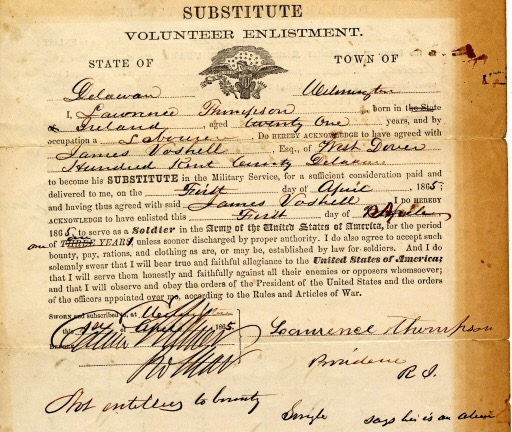 SUBSTITUTE
VOLUNTEER ENLISTMENT.
STATE OF TOWN OF
Delawar Wilmington
I, Lawrence Thompson, born in the State
of Ireland, aged twenty One years, and by
occupation a Labourer, Do HEREBY ACKNOWLEDGE to have agreed with
James Voshell, Esq., of West Dover
Hundred Kent County Delaware
to become his SUBSTITUTE in the Military Service, for a sufficient consideration paid and
delivered to me, on the First day of April, 1865;
and having thus agreed with said James Voshell, I DO HEREBY
ACKNOWLEDGE to have enlisted this First day of April
1865 to serve as a Soldier in the Army of the United States of America, for the period
one of THREE YEARS, unless sooner discharged by proper authority. I do also agree to accept such
bounty, pay, rations, and clothing as are, or may be, established by law for soldiers. And I do
solemnly swear that I will bear true and faithful allegiance to the United States of America;
that I will serve them honestly and faithfully against all their enemies or opposers whomsoever;
and that I will observe and obey the orders of the President of the United States and the orders
of the officers appointed over me, according to the Rules and Articles of War.
SWORN and subscribed to, at
this 1st April 1865
BEFORE
Lawrence Thompson
Providence
R I.
Not entitled to bounty
Single says he is an alien